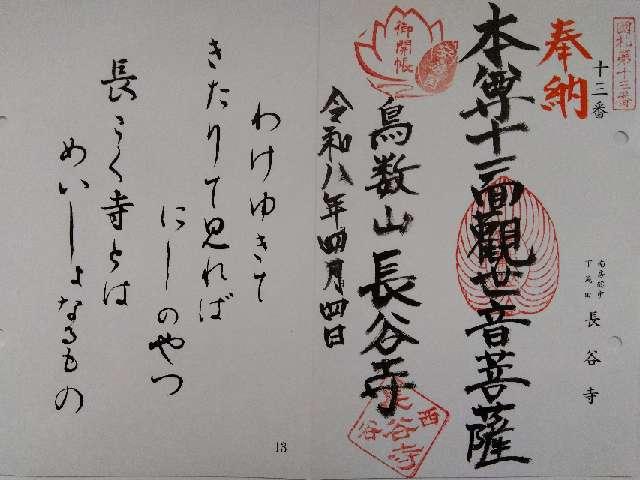 国札第十三番
十三番
奉納
南房総市
下滝田
長谷寺
本尊十一面觀世音菩薩
御開帳
鳥数山長谷寺
西
谷
長谷寺
令和八年四月四日
わけゆきて
きたりて見れば
にしのやつ
長こく寺とは
めいしよなるもの
13